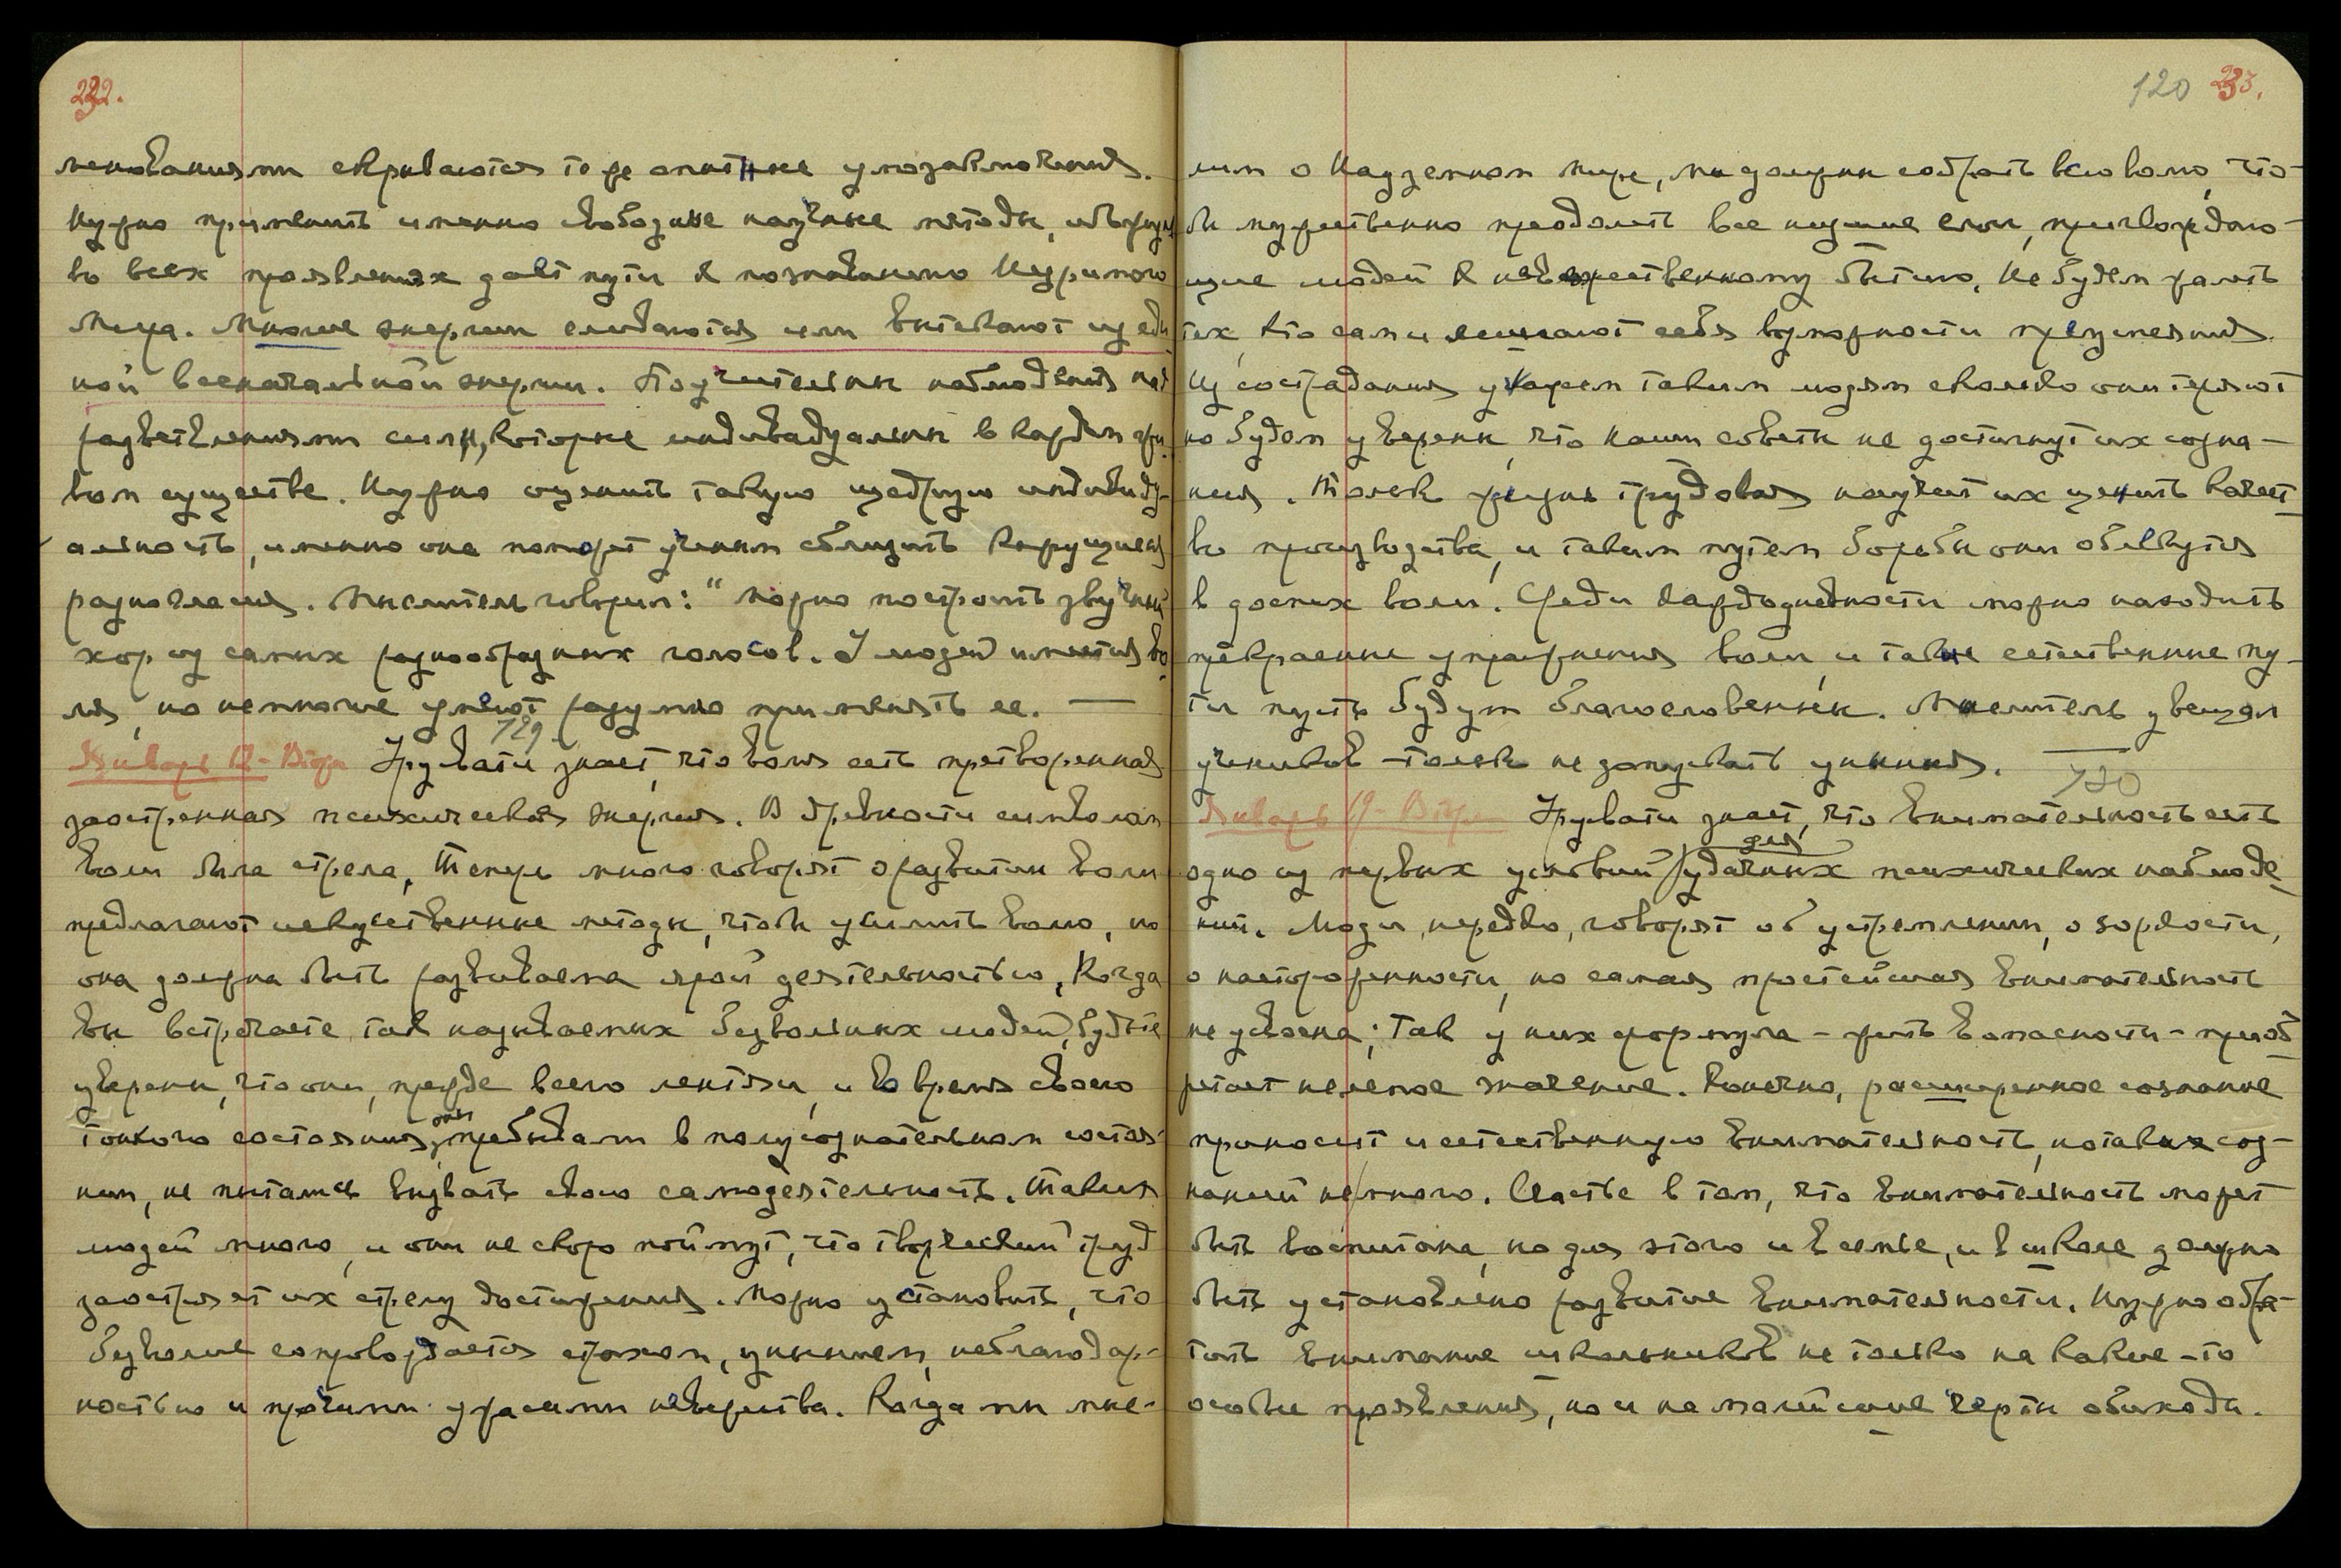 232.
менованиями скрываются те же опытные умозаключения.
Нужно применить именно свободные научные методы, ибо
во всех проявлениях даст пути к познаванию Незримого
Мира. Многие энергии сливаются или вытекают из еди
ной всеначальной энергии. Поучительны наблюдения над
разветвлениями силы, которые индивидуальны в каждом жи
вом существе. Нужно оценить такую щедрую индивиду-
альность, именно она поможет ученым сблизить кажущиеся
разногласия. Мыслитель говорил: "можно построить звучный
хор из самых разнообразных голосов. У людей имеется во
ля, но немногие умеют разумно применять ее. —
729
Январь 18 - Втор Урусвати знает, что воля есть претворенная
заостренная психическая энергия. В древности символом
воли была стрела, Теперь много говорят о развитии воли
предлагают искусственные методы, чтобы усилить волю, но
она должна быть развиваема ярой деятельностью, Когда
вы встречаете так называемых безвольных людей, будьте
уверены, что они, прежде всего лентяи, и во время своего
тонкого состояния, они пребывали в полусознательном состоя-
нии, не пытались вызвать свою самодеятельность. Таких
людей много, и они не скоро поймут, что творческий труд
заостряет их стрелу достижения. Можно установить, что
безволие сопровождается страхом, унынием, неблагодар-
ностью и прочими ужасами невежества. Когда мы мыс-
120 233.
лим о Надземном мире, мы должны собрать всю волю, что-
бы мужественно преодолеть все низшие слои, пригвождаю-
щие людей к невежественному бытию. Не будем жалеть
тех, кто сами лишают себя возможности преуспеяния.
Из сострадания укажем таким людям сколько они теряют
но будем уверены, что наши советы не достигнут их созна-
ния. Только жизнь трудовая научит их ценить качест
во производства, и таким путем борьбы они облекутся
в доспех воли. Среди каждодневности можно находить
прекрасные упражнения воли, и такие естественные пу-
ти пусть будут благословенны. Мыслитель увещал
учеников - только не допускать уныния. —
730
Январь 19 - Втор Урусвати знает, что внимательность есть
одно из первых условий для удачных психических наблюде-
ний. Люди, нередко, говорят об устремлении, о зоркости,
о настороженности, но самая простейшая внимательность
не усвоена; Так у них формула - жить в опасности - приоб
ретает нелепое значение. Конечно, расширенное сознание
приносит и естественную внимательность, но таких соз-
наний немного. Счастье в том, что внимательность может
быть воспитана, но для этого и в семье, и в школе должно
быть установлено развитие внимательности. Нужно обра-
тить внимание школьников не только на какие-то
особые проявления, но и на малейшие черты обихода.